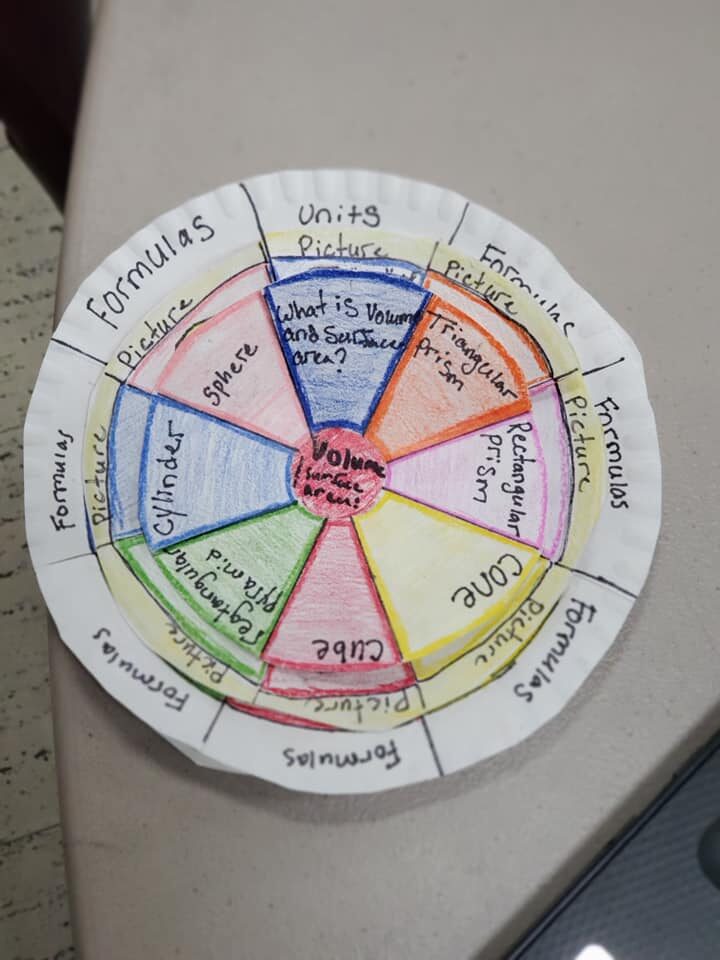 Units
Picture
What is Volume
and Surface
area?
Formulas
Picture
Triangular
prism
Formulas
Picture
Rectangular
prism
Formulas
Picture
Cone
Formulas
Picture
Cube
Formulas
Picture
regtangular
pyramid
Formulas
Picture
Cylinder
Formulas
Picture
Sphere
Volume
/surface
area: